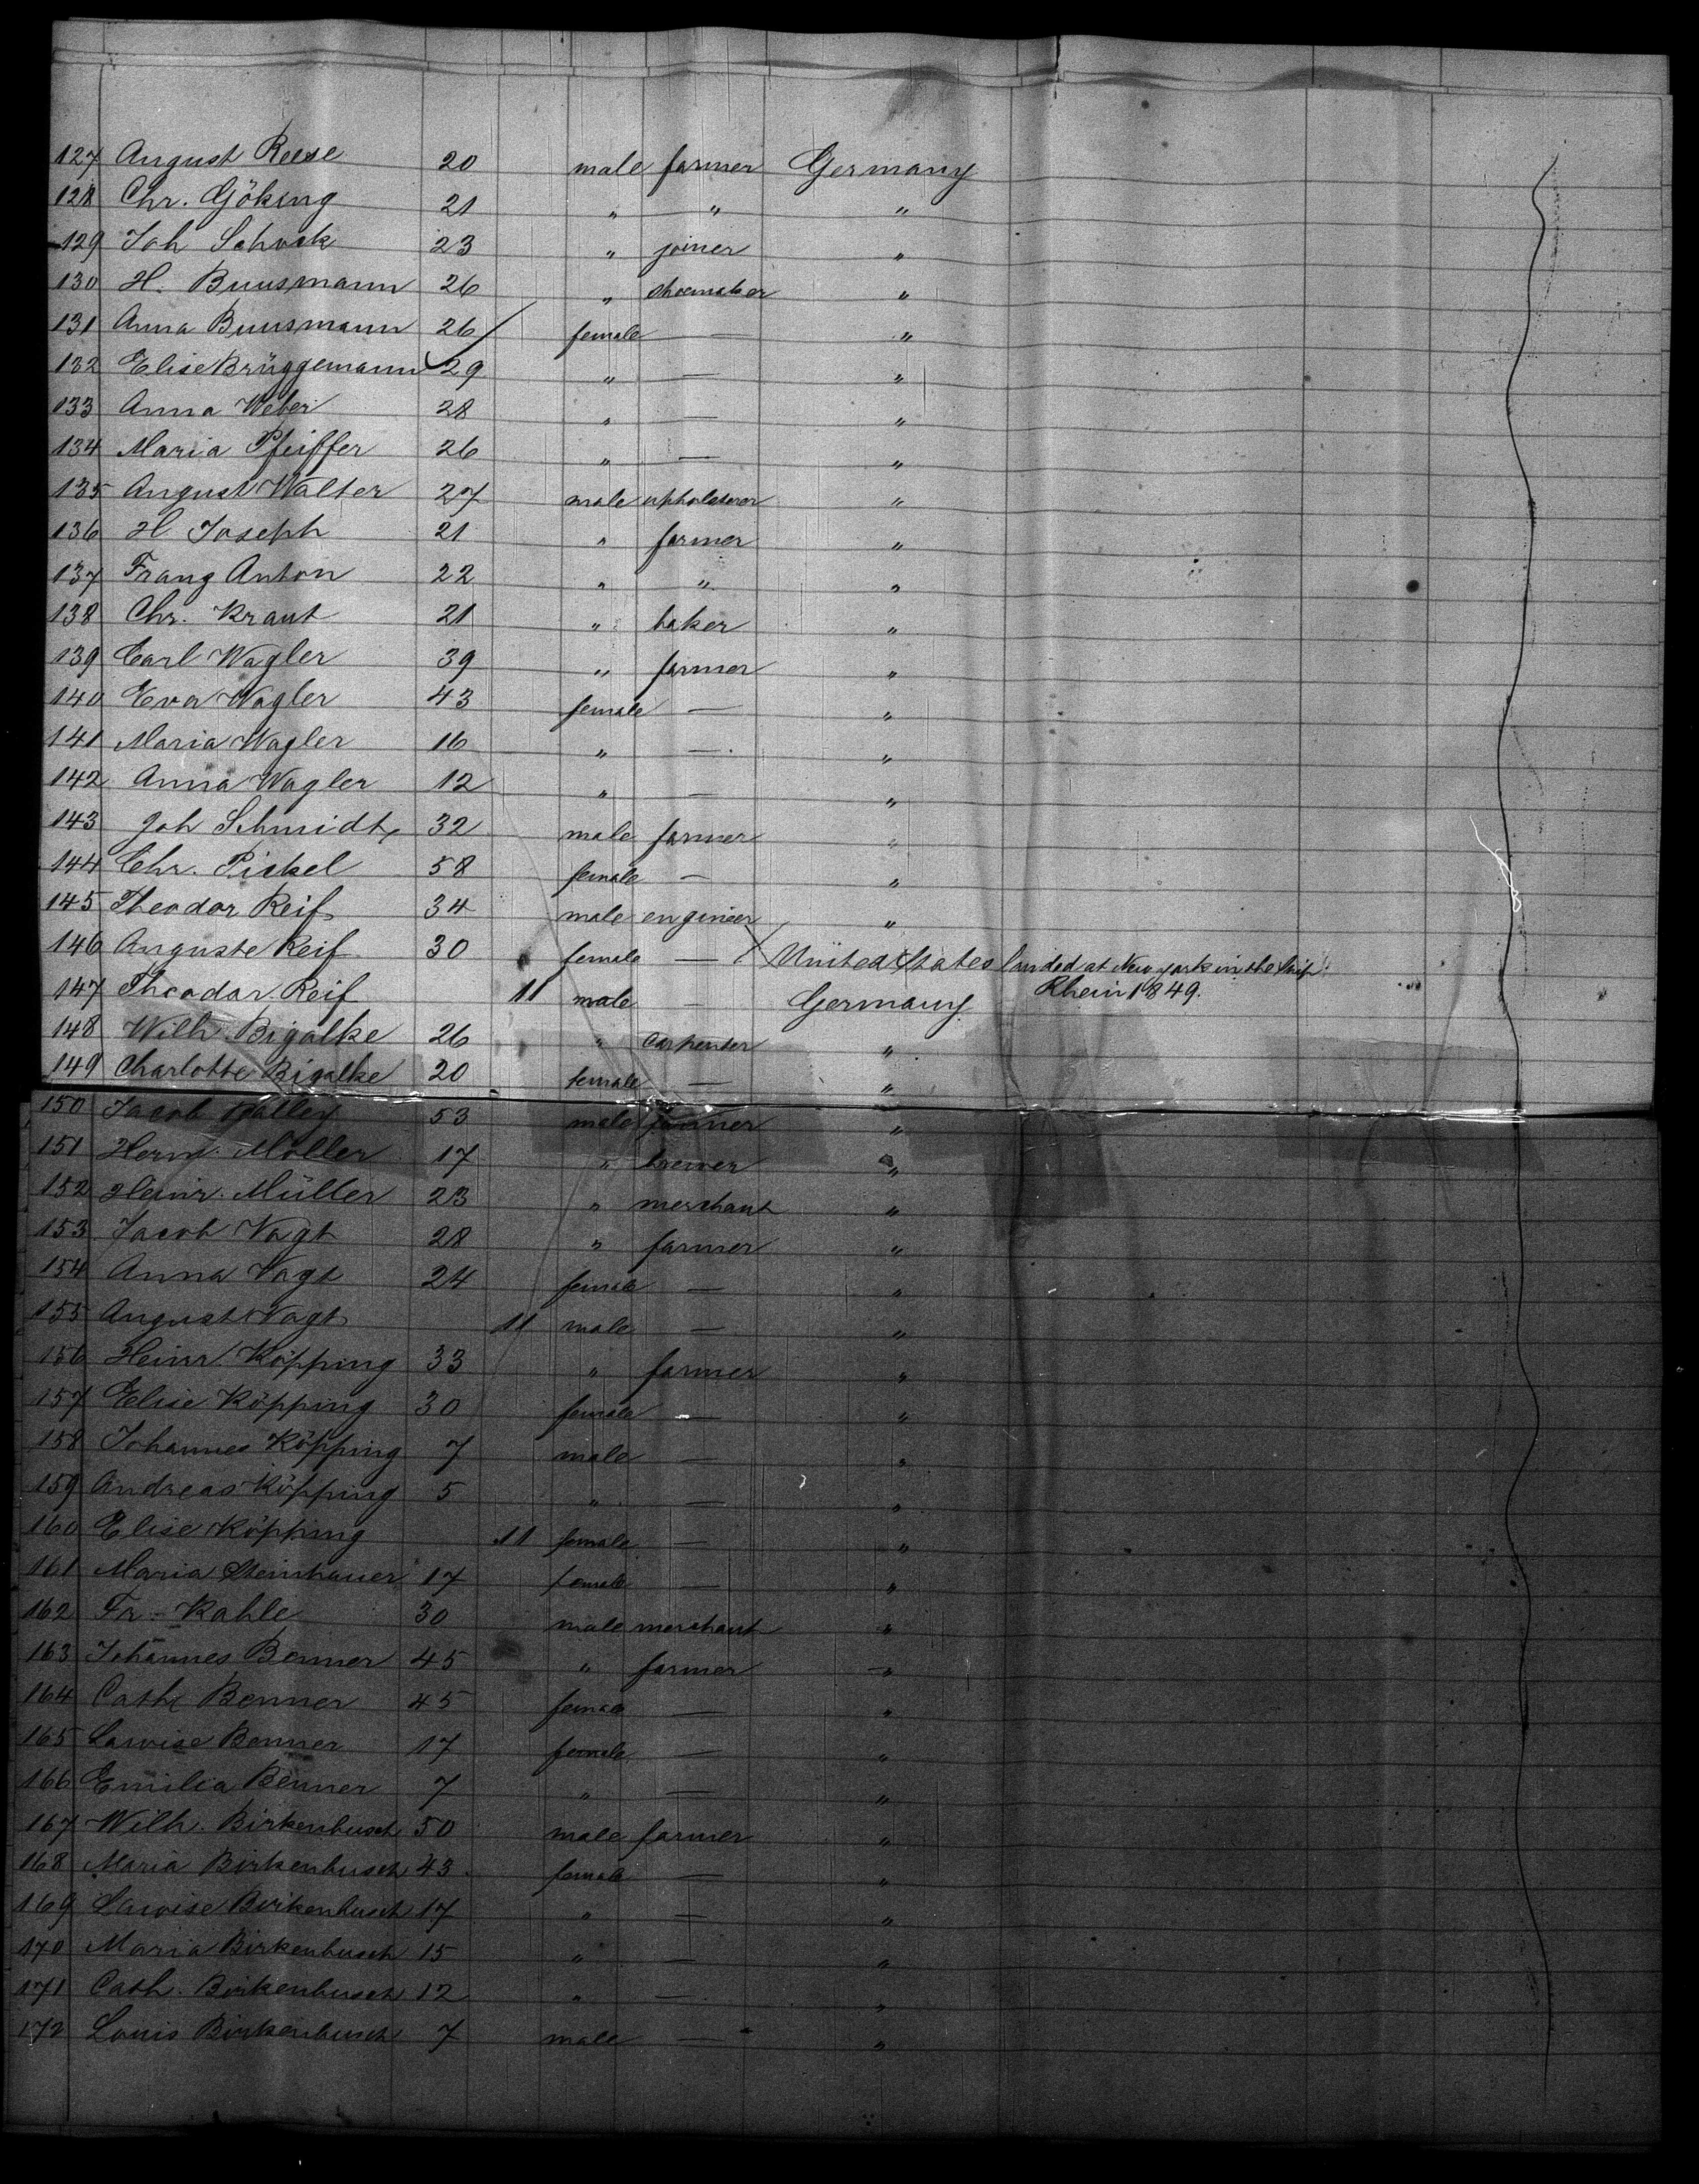 127 August Reese 20 male farmer Germany
128 Chr. Göking 21 " " "
129 Joh Schock 23 " joiner "
130 H. Buusmann 26 " shoemaker "
131 Anna Buusmann 26 female — "
132 Elise Brüggemann 29 " — "
133 Anna Weber 28 " — "
134 Maria Pfeiffer 26 " — "
135 August Walter 27 male upholsterer "
136 H. Joseph 21 " farmer "
137 Franz Anton 22 " " "
138 Chr. Kraut 21 " baker "
139 Carl Wagler 39 " farmer "
140 Eva Wagler 43 female — "
141 Maria Wagler 16 " — "
142 Anna Wagler 12 " — "
143 Joh Schmidt 32 male farmer "
144 Chr. Pickel 58 female — "
145 Theodor Reif 34 male engineer "
146 Auguste Reif 30 female — United States landed at New york in the Ship
147 Theodor Reif 11 male — Germany Rhein 1849.
148 Wilh. Bigalke 26 " carpenter "
149 Charlotte Bigalke 20 female — "
150 Jacob 53 male farmer "
151 Herm. Möller 17 " brewer "
152 Heinr. Müller 23 " merchant "
153 Jacob Vagt 28 " farmer "
154 Anna Vagt 24 female — "
155 August Vagt 11 male — "
156 Heinr. Köpping 33 " farmer "
157 Elise Köpping 30 female — "
158 Johannes Köpping 7 male — "
159 Andreas Köpping 5 " — "
160 Elise Köpping 11 female — "
161 Maria Steinhauer 17 female — "
162 Fr. Kahle 30 male merchant "
163 Johannes Benner 45 " farmer "
164 Cath Benner 45 female — "
165 Louise Benner 17 female — "
166 Emilia Benner 7 " — "
167 Wilh. Birkenbusch 50 male farmer "
168 Maria Birkenbusch 43 female — "
169 Louise Birkenbusch 17 " — "
170 Maria Birkenbusch 15 " — "
171 Cath. Birkenbusch 12 " — "
172 Louis Birkenbusch 7 male — "